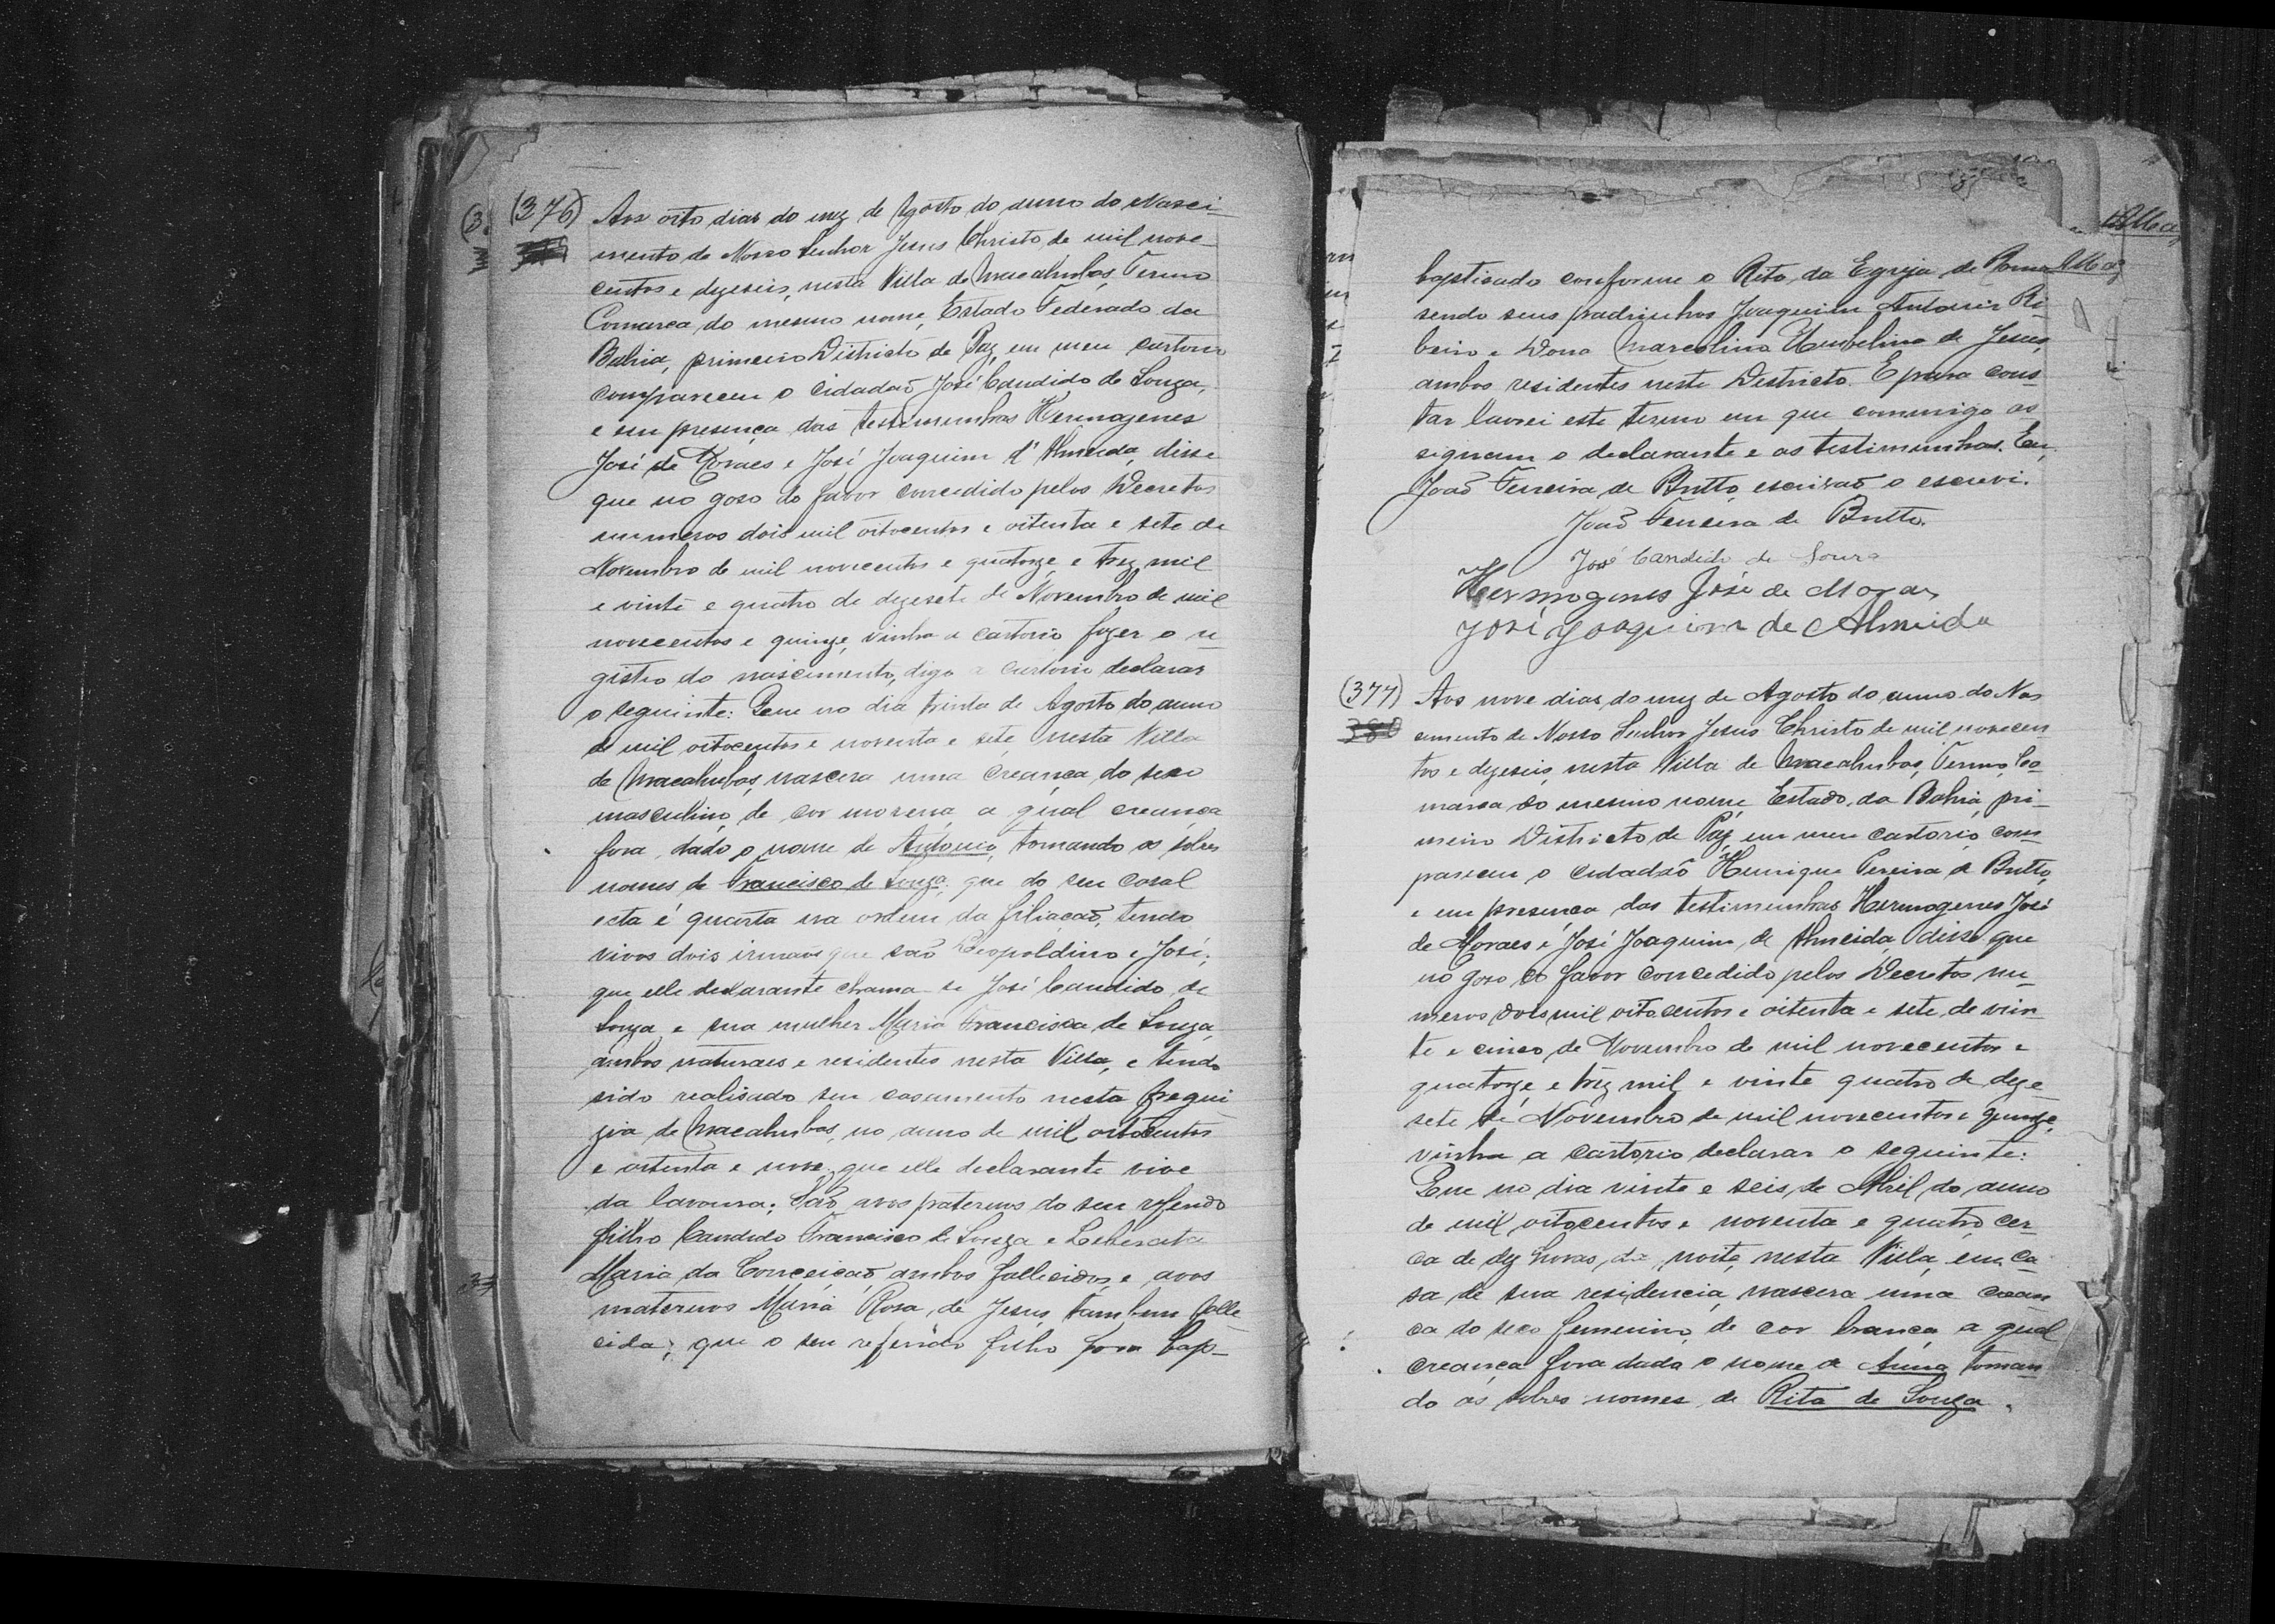 (376) Aos oito dias do mez de Agosto do anno do Nasci-
mento de Nosso Senhor Jesus Christo de mil nove-
centos e dezeseis, nesta Villa de Macahubas, Termo
Comarca do mesmo nome, Estado Federado da
Bahia, primeiro Districto de Paz, em meu cartorio
compareceu o cidadaõ José Candido de Souza,
e em presença das testimunhas Hermogenes
José de Moraes e José Joaquim d'Almeida, disse
que no goso do favor concedido pelos Decretos
numeros dois mil oitocentos e oitenta e sete de
Novembro de mil novecentos e quatorze e trez mil
e vinte e quatro de dezesete de Novembro de mil
novecentos e quinze, vinha a cartorio fazer o re
gistro do nascimento, digo a cartorio declarar
o seguinte: Que no dia trinta de Agosto do anno
de mil oitocentos e noventa e sete nesta Villa
de Macahubas, nascera uma creança do sexo
masculino, de cor morena, a qual creança
fora dado o nome de Antonio, tomando os sobres
nomes de Francisco de Souza; que do seu casal
esta é quarta na ordem da filiacaõ, tendo
vivos dois irmaõs que saõ Leopoldino e José;
que elle declarante chama-se José Candido de
Souza e sua mulher Maria Francisca de Souza,
ambos naturaes e residentes nesta Villa, e tendo
sido realisado seu casamento nesta Fregui
zia de Macahubas, no anno de mil oitocentos
e oitenta e nove; que elle declarante vive
da lavoura; Saõ avos paternos do seu referido
filho Candido Francisco de Souza e Liberata
Maria da Conceicaõ, ambos fallecidos, e avos
maternos Maria Rosa de Jesus, tambem falle
cida; que o seu referido filho fora bap-
baptisado conforme o Rito da Egreja de Roma
sendo seus padrinhos Joaquim Antonio Ri-
beiro e Dona Marcolina Umbelina de Jesus,
ambos residentes neste Destricto. E para cons
tar lavrei este termo em que commigo as
signam o declarante e as testimunhas. Eu,
Joaõ Ferreira de Britto, escrivaõ o escrevi.
Joaõ Ferreira de Britto.
José Candido de Souza
Hermogenes José de Moraes
José Joaquim de Almeida
(377) Aos nove dias do mez de Agosto do anno do Nas
cimento de Nosso Senhor Jesus Christo de mil novecen
tos e dezeseis, nesta Villa de Macahubas, Termo, Co-
marca do mesmo nome Estado da Bahia, pri-
meiro Districto de Paz, em meu cartorio, com
pareceu o cidadaõ Henrique Pereira de Britto,
e em presença das testimunhas Hermogenes José
de Moraes e José Joaquim de Almeida, disse que
no goso do favor concedido pelos Decretos nu-
meros dois mil oitocentos e oitenta e sete de vin
te e cinco de Novembro de mil novecentos e
quatorze e trez mil e vinte quatro de deze
sete de Novembro de mil novecentos e quinze,
vinha a cartorio declarar o seguinte:
Que no dia vinte e seis de Abril do anno
de mil oitocentos e noventa e quatro, cer-
ca de dez horas da noite, nesta Villa, em ca-
sa de sua residencia, nascera uma crean
ca do sexo femenino, de cor branca, a qual
creança fora dada o nome de Anna toman
do os sobres nomes de Rita de Souza.